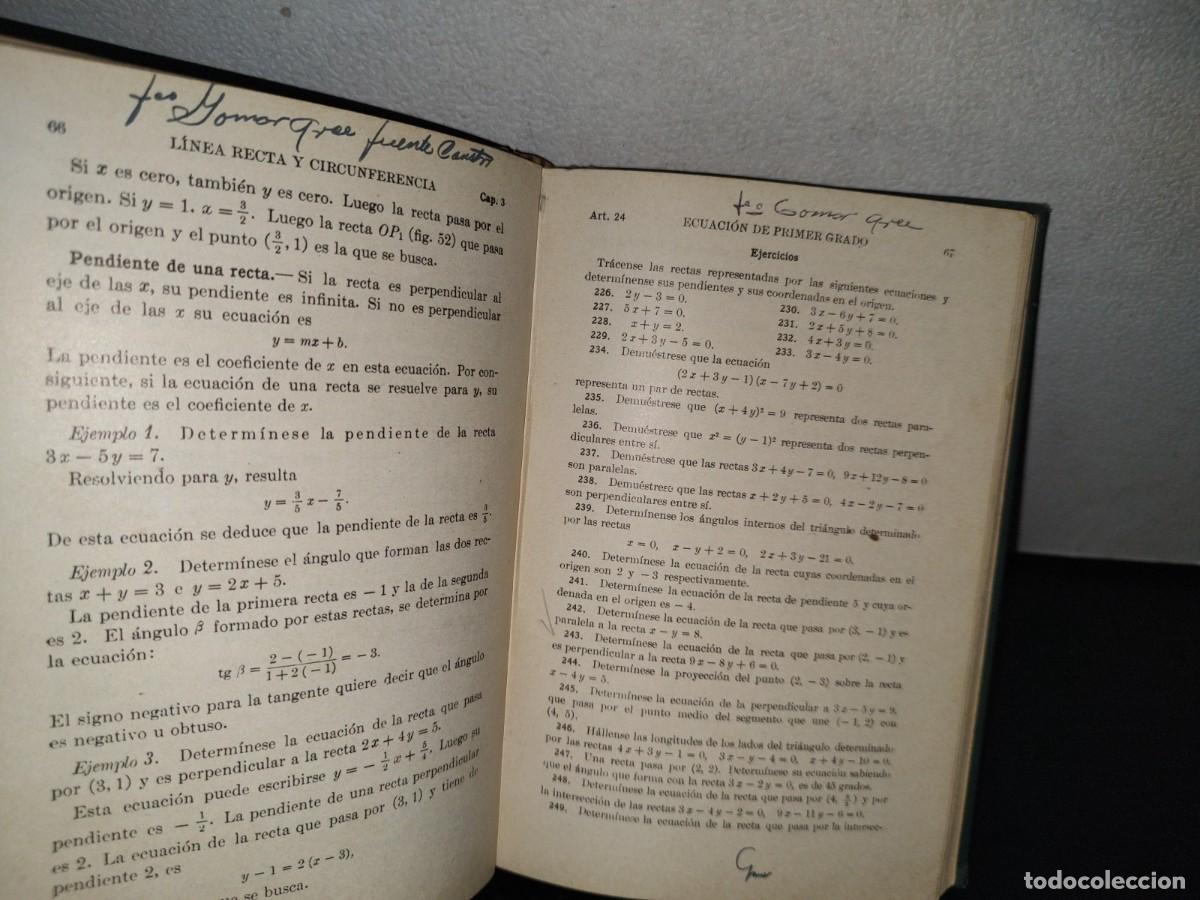 fco Gomar Gree fuente Cantos
66
LÍNEA RECTA Y CIRCUNFERENCIA
Cap. 3
Si x es cero, también y es cero. Luego la recta pasa por el
origen. Si y = 1. x = 3/2. Luego la recta OP₁ (fig. 52) que pasa
por el origen y el punto (3/2, 1) es la que se busca.
Pendiente de una recta.— Si la recta es perpendicular al
eje de las x, su pendiente es infinita. Si no es perpendicular
al eje de las x su ecuación es
y = mx + b.
La pendiente es el coeficiente de x en esta ecuación. Por con-
siguiente, si la ecuación de una recta se resuelve para y, su
pendiente es el coeficiente de x.
Ejemplo 1. Determínese la pendiente de la recta
3x − 5y = 7.
Resolviendo para y, resulta
y = 3/5 x − 7/5.
De esta ecuación se deduce que la pendiente de la recta es 3/5.
Ejemplo 2. Determínese el ángulo que forman las dos rec-
tas x + y = 3 e y = 2x + 5.
La pendiente de la primera recta es − 1 y la de la segunda
es 2. El ángulo β formado por estas rectas, se determina por
la ecuación:
tg β = 2 − (− 1) / 1 + 2 (− 1) = − 3.
El signo negativo para la tangente quiere decir que el ángulo
es negativo u obtuso.
Ejemplo 3. Determínese la ecuación de la recta que pasa
por (3, 1) y es perpendicular a la recta 2x + 4y = 5.
Esta ecuación puede escribirse y = − 1/2 x + 5/4. Luego su
pendiente es − 1/2. La pendiente de una recta perpendicular
es 2. La ecuación de la recta que pasa por (3, 1) y tiene de
pendiente 2, es
y − 1 = 2 (x − 3),
se busca.
fco Gomar Gree
Art. 24
ECUACIÓN DE PRIMER GRADO
67
Ejercicios
Trácense las rectas representadas por las siguientes ecuaciones y
determínense sus pendientes y sus coordenadas en el origen.
226. 2y − 3 = 0. 230. 3x − 6y + 7 = 0.
227. 5x + 7 = 0. 231. 2x + 5y + 8 = 0.
228. x + y = 2. 232. 4x + 3y = 0.
229. 2x + 3y − 5 = 0. 233. 3x − 4y = 0.
234. Demuéstrese que la ecuación
(2x + 3y − 1) (x − 7y + 2) = 0
representa un par de rectas.
235. Demuéstrese que (x + 4y)² = 9 representa dos rectas para-
lelas.
236. Demuéstrese que x² = (y − 1)² representa dos rectas perpen-
diculares entre sí.
237. Demuéstrese que las rectas 3x + 4y − 7 = 0, 9x + 12y − 8 = 0
son paralelas.
238. Demuéstrese que las rectas x + 2y + 5 = 0, 4x − 2y − 7 = 0
son perpendiculares entre sí.
239. Determínense los ángulos internos del triángulo determinado
por las rectas
x = 0, x − y + 2 = 0, 2x + 3y − 21 = 0.
240. Determínese la ecuación de la recta cuyas coordenadas en el
origen son 2 y − 3 respectivamente.
241. Determínese la ecuación de la recta de pendiente 5 y cuya or-
denada en el origen es − 4.
242. Determínese la ecuación de la recta que pasa por (3, − 1) y es
paralela a la recta x − y = 8.
243. Determínese la ecuación de la recta que pasa por (2, − 1) y
es perpendicular a la recta 9x − 8y + 6 = 0.
244. Determínese la proyección del punto (2, − 3) sobre la recta
x − 4y = 5.
245. Determínese la ecuación de la perpendicular a 3x − 5y = 9,
que pasa por el punto medio del segmento que une (− 1, 2) con
(4, 5).
246. Hállense las longitudes de los lados del triángulo determinado
por las rectas 4x + 3y − 1 = 0, 3x − y − 4 = 0, x + 4y − 10 = 0.
247. Una recta pasa por (2, 2). Determínese su ecuación sabiendo
que el ángulo que forma con la recta 3x − 2y = 0, es de 45 grados.
248. Determínese la ecuación de la recta que pasa por (4, ) y por
la intersección de las rectas 3x − 4y − 2 = 0, 9x − 11y − 6 = 0.
249. Determínese la ecuación de la recta que pasa por la intersec-
todocoleccion